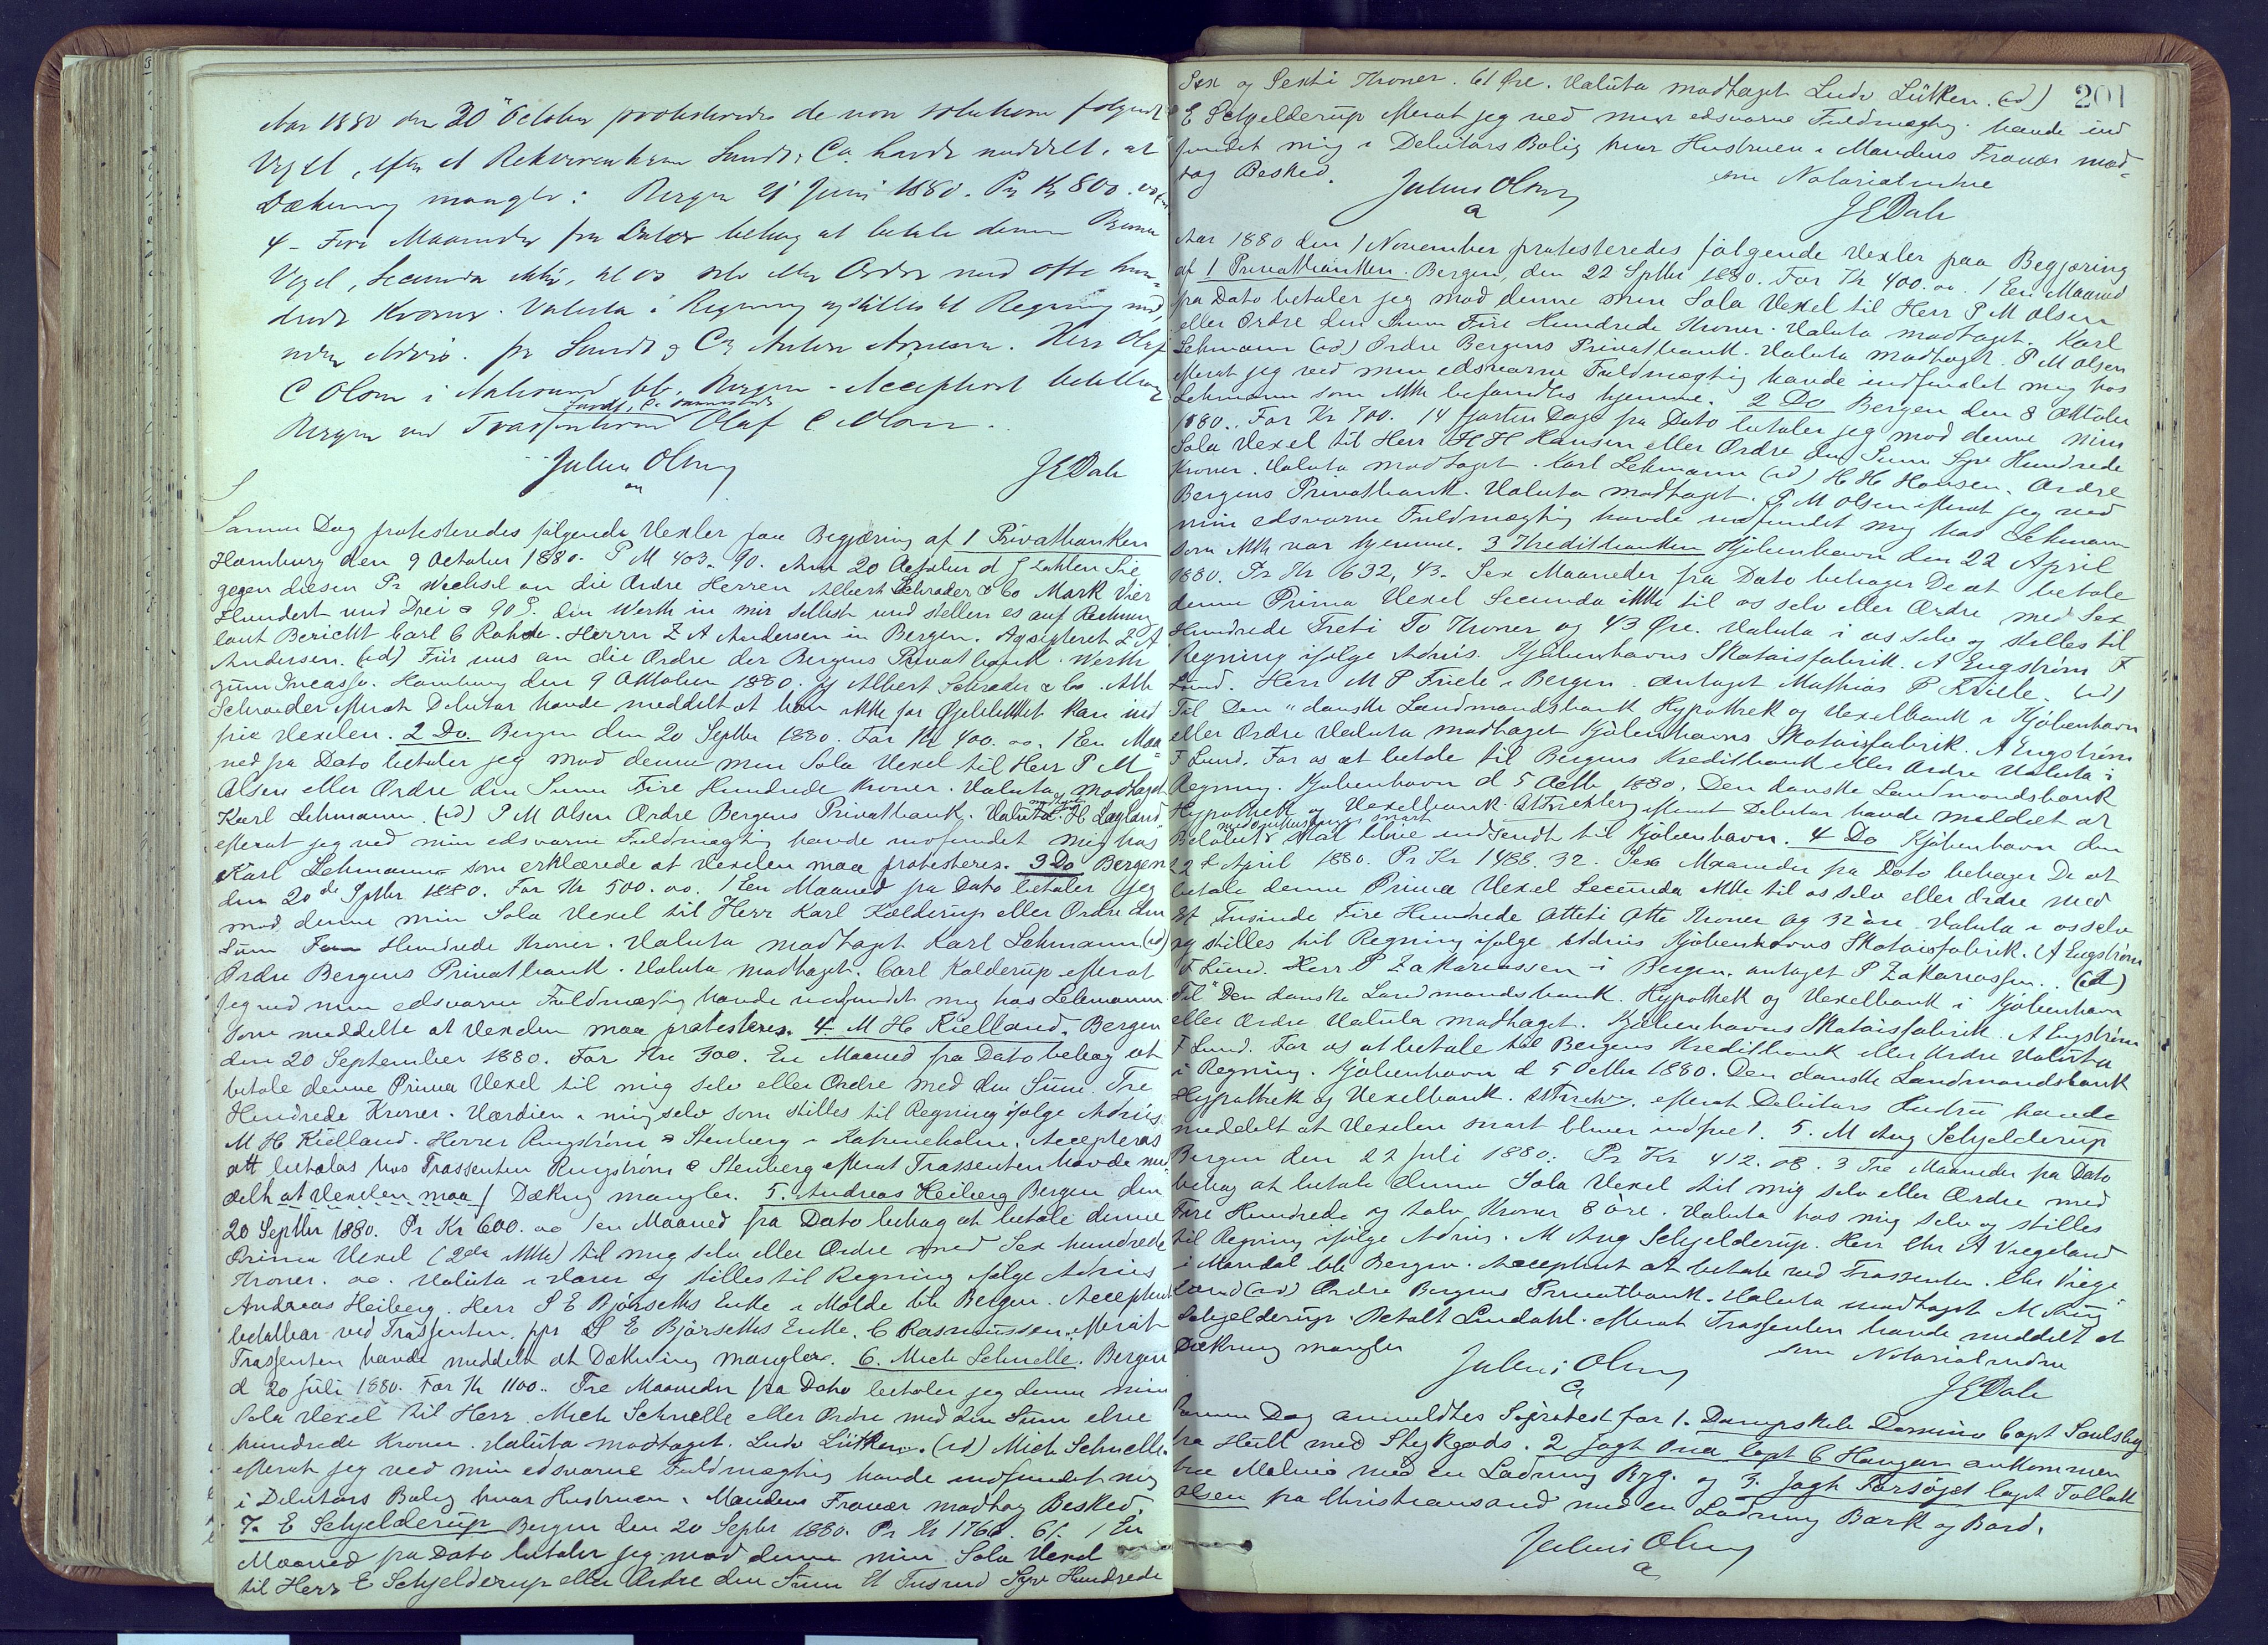 Aar 1880 den 20de October protesteredes de non solutione følgende
Vexel, efter at Rekvirenterne Sundt & Co. havde meddelt, at
Dækning mangler: Bergen 21 Juni 1880. Pr Kr 800.00
4 - Fire Maaneder fra Dato behag at betale denne Prima
Vexel, Secunda ikke, til os selv eller Ordre med otte hun-
drede Kroner. Valuta i Regning og stilles til Regning med
uden Advis. pr Sundt & Co Anton Arnesen. Herr Olaf
C Olsen i Aalesund bb. Bergen - Accepteret betalbar
Sundt & Co
Bergen ved Trassenterne Olaf C Olsen.
Julius Olsen
JEDahl
Samme Dag protesteredes følgende Vexler paa Begjæring af 1 Privatbanken
Hamburg den 9 October 1880. P M 403. 90. Am 20 October d J zahlen Sie
gegen diesen Pr Wechsel an die Ordre Herren Albert Schrader & Co Mark Vier
Hundert und Drei & 90 P. den Werth in mir selbst und stellen es auf Rechnung
laut Bericht Carl C Rohde. Herrn Z A Andersen in Bergen. Acqsepteret Z A
Andersen. (id) Für uns an die Ordre der Bergens Privatbank. Werth
zum Incasso. Hamburg den 9 Oktober 1880. Albert Schrader & Co. Alb
Schrader efterat Debitor havde meddelt at han ikke for Øjeblikket kan ind
frie Vexelen. 2 Do. Bergen den 20 Septbr 1880. For Kr 400. oo. 1 En Maa
ned fra Dato betaler jeg mod denne min Sola Vexel til Herr P M
Olsen eller Ordre den Summ Fire Hundrede Kroner. Valuta modtaget
Karl Lehmann. (id) P M Olsen Ordre Bergens Privatbank. Valuta H Lagland
efterat jeg ved min edsvorne Fuldmægtig havde indfundet mig hos
Karl Lehmann som erklærede at Vexelen maa protesteres. 3 Do Bergen
den 20de Sptbr 1880. For Kr 500. oo. 1 En Maaned fra Dato betaler jeg
mod denne min Sola Vexel til Herr Karl Kolderup eller Ordre den
Sum Fem Hundrede Kroner. Valuta modtaget Karl Lehmann (id)
Ordre Bergens Privatbank. Valuta modtaget. Carl Kolderup efterat
jeg ved min edsvorne Fuldmægtig havde indfundet mig hos Lehmann
som meddelte at Vexelen maa protesteres. 4. M H Kielland. Bergen
den 20 September 1880. For Kr 300. En Maaned fra Dato behag at
betale denne Prima Vexel til mig selv eller Ordre med den Sum Tre
Hundrede Kroner. Værdien i mig selv som stilles til Regning ifølge Advis
M H Kielland. Herrer Ringstrøm & Stenberg i Katrineholm. Accepteras
att betalas hos Trassenten Ringstrøm & Stenberg efterat Trassenten havde med
delt at Vexelen maa / Dækng mangler. 5. Andreas Heiberg Bergen den
20 Septbr 1880. Pr Kr 600. oo 1 en Maaned fra Dato behag at betale denne
Prima Vexel (2da ikke) til mig selv eller Ordre med Sex hundrede
Kroner. oo. Valuta i Varer og stilles til Regning ifølge Advis
Andreas Heiberg. Herr S E Bjørseths Enke i Molde bb Bergen. Accepteret
betalbar ved Trassenten. ppr S E Bjørseths Enke. C Rasmussen. efterat
Trassenten havde meddelt at Dækning mangler. 6. Mich Schnelle. Bergen
d 20 Juli 1880. For Kr 1100.. Tre Maaneder fra Dato betaler jeg denne min
Sola Vexel til Herr Mich Schnelle eller Ordre med den Sum elve
hundrede Kroner. Valuta modtaget. Ludv Lütken. (id) Mich Schnelle.
efterat jeg ved min edsvorne Fuldmægtig havde indfundet mig
i Debitors Bolig hvor Hustruen i Mandens Fravær modtog Besked.
7. E Schjelderup Bergen den 20 Septbr 1880. Pr Kr 1766. 61. 1 En
Maaned fra Dato betaler jeg mod denne min Sola Vexel
til Herr E Schjelderup eller Ordre den Sum Et Tusend Syv Hundrede
201
Sex og Sexti Kroner. 61 Øre. Valuta modtaget Ludv Lütken. (id)
E Schjelderup efterat jeg ved min edsvorne Fuldmægtig havde ind
fundet mig i Debitors Bolig hvor Hustruen i Mandens Fravær mod-
tog Besked.
Julius Olsen
som Notarialvidne
JEDahl
Aar 1880 den 1 November protesteredes følgende Vexler paa Begjæring
af 1 Privatbanken. Bergen, den 22 Sptbr 1880. For Kr 400. oo. 1 En Maaned
fra Dato betaler jeg mod denne min Sola Vexel til Herr P M Olsen
eller Ordre den Summ Fire Hundrede Kroner. Valuta modtaget. Karl
Lehmann (id) Ordre Bergens Privatbank. Valuta modtaget. P M Olsen
efterat jeg ved min edsvorne Fuldmægtig havde indfundet mig hos
Lehmann som ikke befandtes hjemme. 2 Do Bergen den 8 Oktober
1880. For Kr 700. 14 fjorten Dage fra Dato betaler jeg mod denne min
Sola Vexel til Herr H H Hansen eller Ordre den Summ Syv Hundrede
Kroner. Valuta modtaget. Karl Lehmann (id) H H Hansen. Ordre
Bergens Privatbank. Valuta modtaget. P M Olsen efterat jeg ved
min edsvorne Fuldmægtig havde indfundet mig hos Lehmann
som ikke var hjemme. 3 Kreditbanken Kjøbenhavn den 22 April
1880. Pr Kr 632, 43. Sex Maaneder fra Dato behager De at betale
denne Prima Vexel Secunda ikke til os selv eller Ordre med Sex
Hundrede Treti To Kroner og 43 Øre. Valuta i os selv og stilles til
Regning ifølge Advis. Kjøbenhavns Skotøisfabrik. A Engstrøm F
Lund. Herr M P Friele i Bergen. Antaget Mathias P Friele. (id)
Til Den "danske Landmandsbank Hypothek og Vexelbank i Kjøbenhavn
eller Ordre Valuta modtaget Kjøbenhavns Skotøisfabrik. A Engstrøm
F Lund. For os at betale til Bergens Kreditbank eller Ordre Valuta i
Regning. Kjøbenhavn d 5 Octb 1880. Den danske Landmandsbank
Hypothek og Vexelbank. efterat Debitor havde meldet at
snart
Beløbet skal blive indsendt til Kjøbenhavn. 4 Do Kjøbenhavn den
22 April 1880. Pr Kr 1488. 32. Sex Maaneder fra Dato behager De at
betale denne Prima Vexel Secunda ikke til os selv eller Ordre med
Et Tusinde Fire Hundrede Otteti Otte Kroner og 32 øre Valuta i os selv
og stilles til Regning ifølge Advis Kjøbenhavns Skotøisfabrik. A Engstrøm
F Lund. Herr P Zakariassen i Bergen. antaget P Zakariassen.. (id)
Til "Den danske Landmandsbank. Hypothek og Vexelbank i Kjøbenhavn
eller Ordre Valuta modtaget. Kjøbenhavns Skotøisfabrik. A Engstrøm
F Lund. For os at betale til Bergens Kreditbank eller Ordre Valuta
i Regning. Kjøbenhavn d 5 Octbr 1880. Den danske Landmandsbank
Hypothek og Vexelbank. efterat Debitors Hustru havde
meddelt at Vexelen snart bliver indfriet. 5. M Aug Schjelderup
Bergen den 22 Juli 1880. Pr Kr 412. 08. 3 Tre Maaneder fra Dato
behag at betale denne Sola Vexel til mig selv eller Ordre med
Fire Hundrede og tolv Kroner 8 øre. Valuta hos mig selv og stilles
til Regning ifølge Advis. M Aug Schjelderup. Herr Chr A Viegeland
i Mandal bb Bergen. Accepteret at betale ved Trassenten. Chr Viege
land (id) Ordre Bergens Privatbank. Valuta modtaget M Aug
Schjelderup. Betalt Lindahl. efterat Trassenten havde meddelt at
Dækning mangler
Julius Olsen
som Notarialvidne
JEDahl
Samme Dag anmeldtes Søprotest for 1. Dampskib Domino Capt Soulsby
fra Hull med Stykgods. 2 Jagt Ona Capt C Haugan ankommen
fra Malmø med en Ladning Byg. og 3. Jagt Forsøget Capt Tollak
Olsen fra Christiansand med en Ladning Bark og Bord.
Julius Olsen